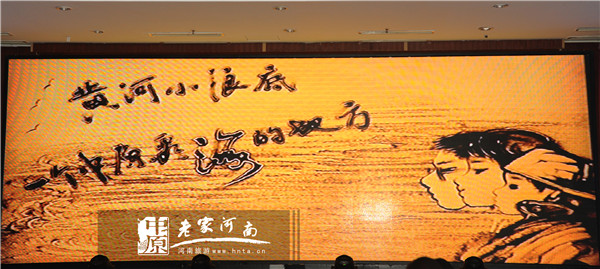 黄河小浪底
一个中原看海的地方
中原
老家河南
河南旅游www.hnta.cn